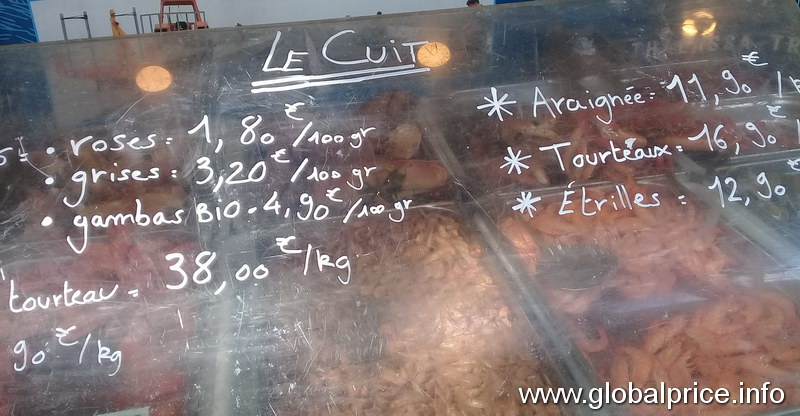 LE CUIT
• roses = 1,80 € /100 gr
• grises = 3,20 € /100 gr
• gambas BIO - 4,90 € /100 gr
tourteau = 38,00 € /kg
90 € /kg
* Araignée = 11,90 € /
* Tourteaux = 16,90 € /
* Étrilles = 12,90 €
www.globalprice.info